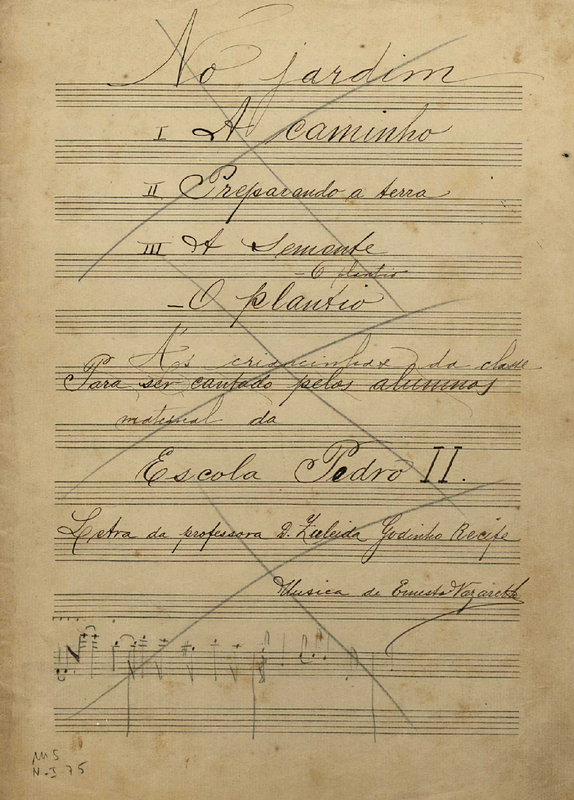 No jardim
I A caminho
II Preparando a terra
III A Semente
- O plantio
- O plantio
A's criancinhas da classe
Para ser cantado pelos alumnos
maternal da
Escola Pedro II.
Letra da professora D. Zuleida Godinho Recife
Musica de Ernesto Nazareth
MS
N-I-75